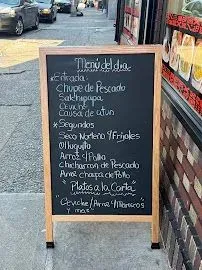 Menú del día
*Entrada:
Chupe de Pescado
Salchipapa
Ceviche
Causa de atún
*Segundos
Seco Norteño y/Frijoles
Olluquito
Arroz y/Pollo
Chicharron de Pescado
Arroz chaufa de Pollo
"Platos a la Carta"
"Ceviche/Arroz y/Mariscos
y mas"